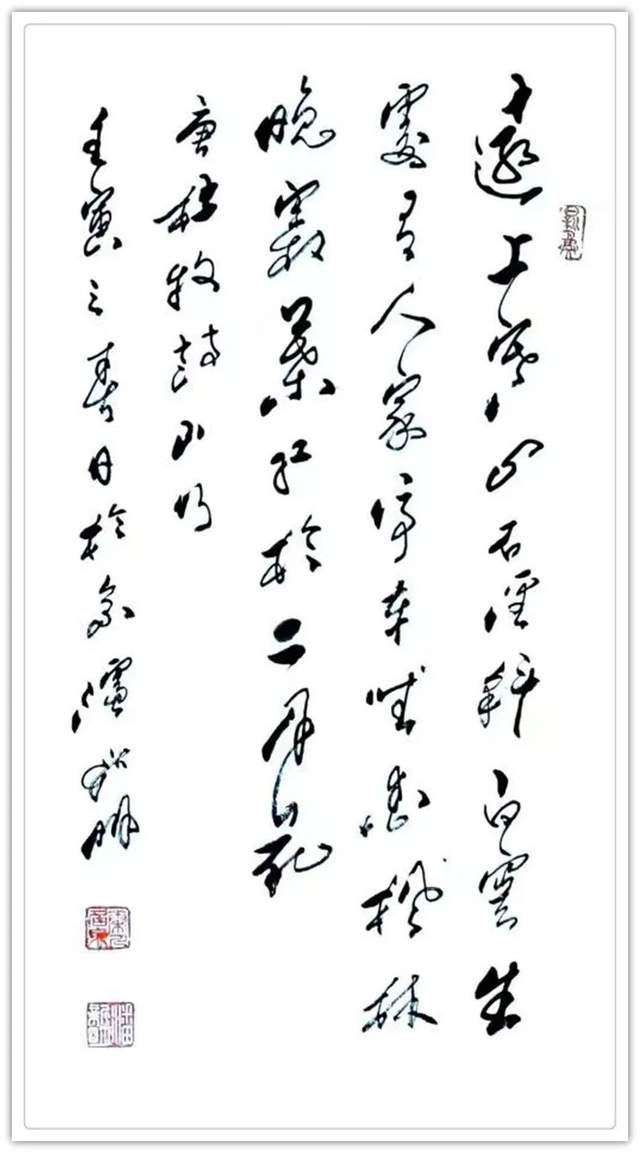 遠上寒山石徑斜白雲生
處有人家停車坐愛楓林
晚霜葉紅於二月花
唐杜牧詩山行
壬寅之春日於